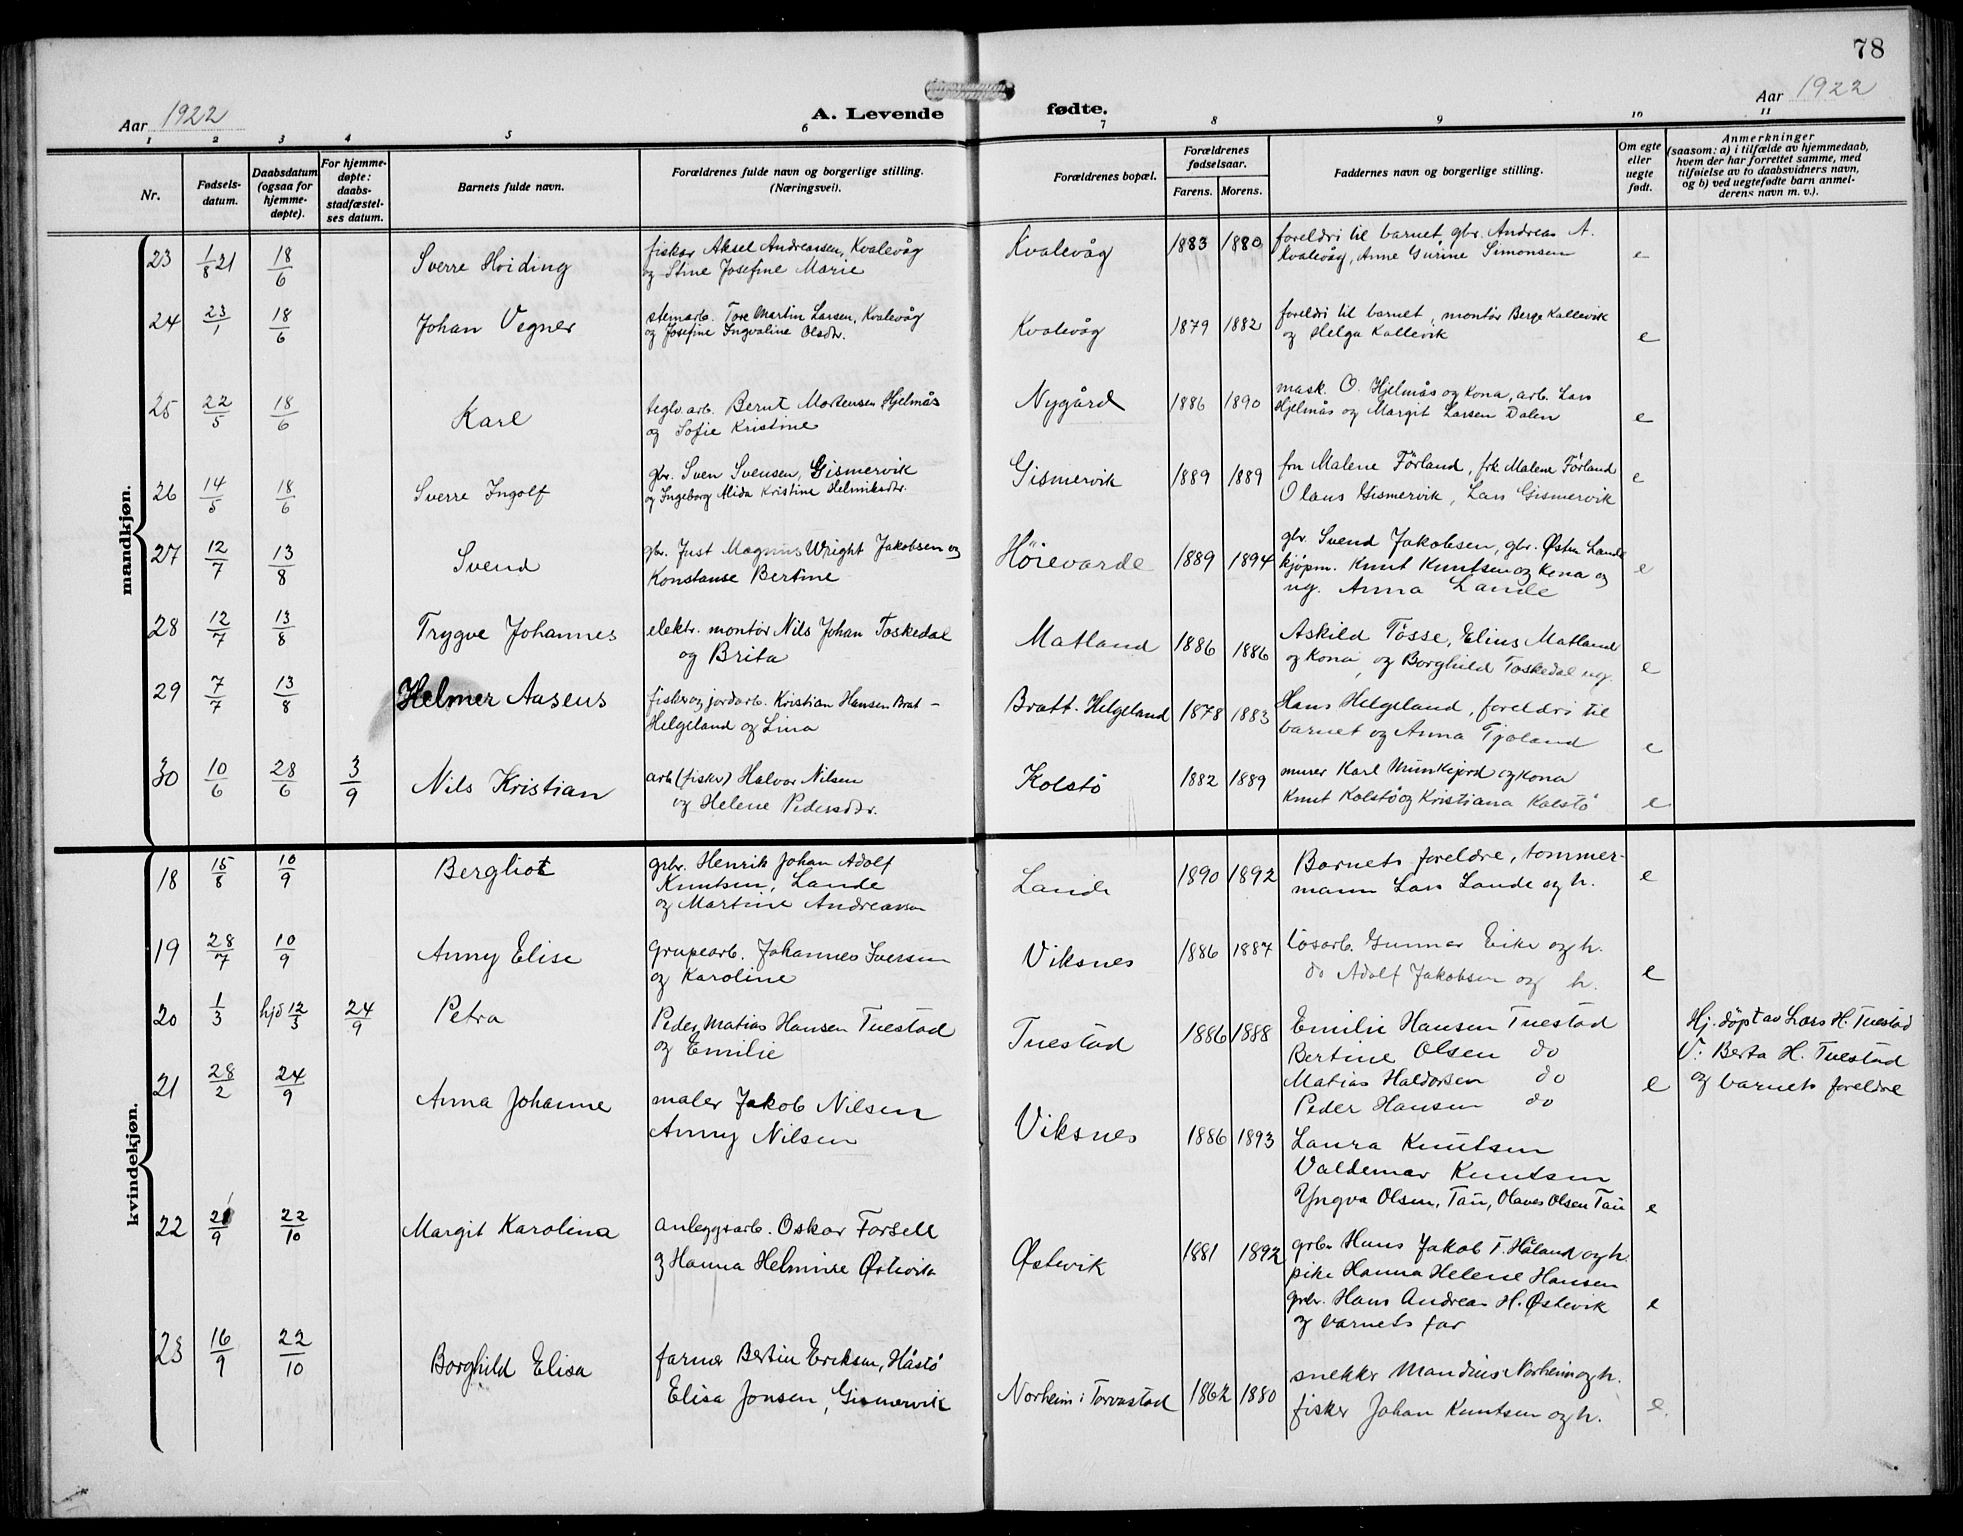 78
Aar 1922
A. Levende fødte.
Aar 1922
1 2 3 4 5 6 7 8 9 10 11
Nr.
Fødsels-
datum.
Daabsdatum
(ogsaa for
hjemme-
døpte).
For hjemme-
døpte:
daabs-
stadfæstel-
ses datum.
Barnets fulde navn.
Forældrenes fulde navn og borgerlige stilling.
(Næringsvei).
Forældrenes bopæl.
Forældrenes
fødselsaar.
Farens. Morens.
Faddernes navn og borgerlig stilling.
Om egte
eller
uegte
født.
Anmerkninger
(saasom: a) i tilfælde av hjemmedaab,
hvem der har forrettet samme, med
tilføielse av to daabsvidners navn,
og b) ved uegtefødte barn anmel-
derens navn m. v.).
mandkjøn.
23 1/8 21 18/6 Sverre Hoiding
fisker Aksel Andreassen, Kvalevåg
og Stine Josefine Marie
Kvalevåg 1883 1880
foreldri til barnet, gbr. Andreas A.
Kvalevåg, Anne Gurine Simonsen
e
24 23/1 18/6 Johan Vegner
stenarb. Tore Martin Larsen, Kvalevåg
og Josefine Ingvaline Olsdtr.
Kvalevåg 1879 1882
foreldri til barnet, montör Berge Kallevik
og Helga Kallevik
e
25 22/5 18/6 Karl
teglv. arb. Bernt Mortensen Hjelmås
og Sofie Kristine
Nygård 1886 1890
mask. O. Hjelmås og kona, arb. Lars
Hjelmås og Margit Larsen Dalen
e
26 14/5 18/6 Sverre Ingolf
gbr. Sven Svensen, Gismervik
og Ingeborg Alida Kristine Helmiksdtr.
Gismervik 1889 1889
fru Malene Förland, frk Malene Förland
Olaus Gismervik, Lars Gismervik
e
27 12/7 13/8 Svend
gbr. Just Magnus Wright Jakobsen og
Konstanse Bertine
Höievarde 1889 1894
gbr. Svend Jakobsen, gbr. Østen Lande
kjøpm. Knut Knutsen og kona og
ug. Anna Lande
e
28 12/7 13/8 Trygve Johannes
elektr. montör Nils Johan Toskedal
og Brita
Matland 1886 1886
Askild Tösse, Elius Matland
og kona, og Borghild Toskedal ug.
e
29 7/7 13/8 Helmer Aasens
fisker og jordarb. Kristian Hansen Brat-
Helgeland og Lina
Bratt-Helgeland 1878 1883
Hans Helgeland, foreldri til
barnet og Anna Tjoland
e
30 10/6 28/6 3/9 Nils Kristian
arb (fisker) Halvor Nilsen
og Helene Pedersdtr.
Kolstö 1882 1889
murer Karl Munkejord og kona
Knut Kolstö og Kristiana Kolstö
e
kvindekjøn.
18 15/8 10/9 Bergliot
grbr. Henrik Johan Adolf
Knutsen, Lande
og Martine Andreassen
Lande 1890 1892
Barnets foreldre, tommer-
mann Lars Lande og h.
e
19 28/7 10/9 Anny Elise
grupearb. Johannes Iversen
og Karoline
Viksnes 1886 1887
lösarb. Gunnar Eike og h.
do Adolf Jakobsen og h.
e
20 1/3 hjd 12/3 24/9 Petra
Peder Matias Hansen Tuestad
og Emilie
Tuestad 1886 1888
Emilie Hansen Tuestad
Bertine Olsen do
Matias Haldorsen do
Peder Hansen do
e
Hj. döpt av Lars H. Tuestad
V: Berta H. Tuestad
og barnets foreldre
21 28/2 24/9 Anna Johanne
maler Jakob Nilsen
Anny Nilsen
Viksnes 1886 1893
Laura Knutsen
Valdemar Knutsen
Yngva Olsen, Tau, Olaves Olsen Tau
e
22 21/9 22/10 Margit Karolina
anleggsarb. Oskar Forsell
og Hanna Helmine Østevik
Østevik 1881 1892
grbr Hans Jakob T. Håland og h.
pike Hanna Helene Hansen
grbr. Hans Andreas H. Østevik
og barnets far
e
23 16/9 22/10 Borghild Elisa
farmer Bertin Eriksen, Håstö
Elisa Jonsen, Gismervik
Norheim i Torvastad 1862 1880
snekker Mandius Norheim og h.
fisker Johan Knutsen og h.
e.